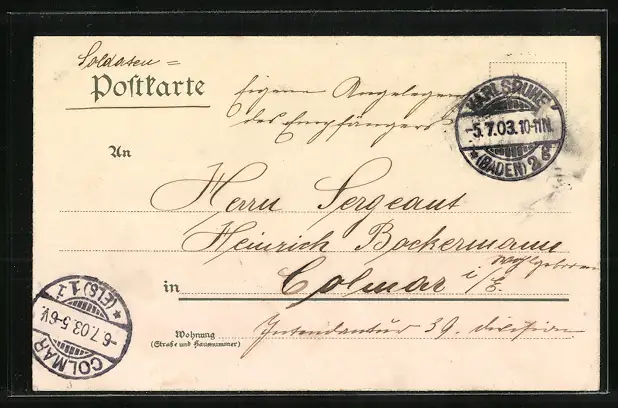 Soldaten =
Postkarte
Eigene Angelegen
des Empfängers
KARLSRUHE
-5.7.03.10-11N.
*(BADEN) 2
An
Herrn Sergeant
Heinrich Bockermann
Wohlgeboren
in Colmar i/E.
COLMAR
-6.7.03.5-6V.
*(ELS) 1
Wohnung
(Straße und Hausnummer)
Intendantur 39. division